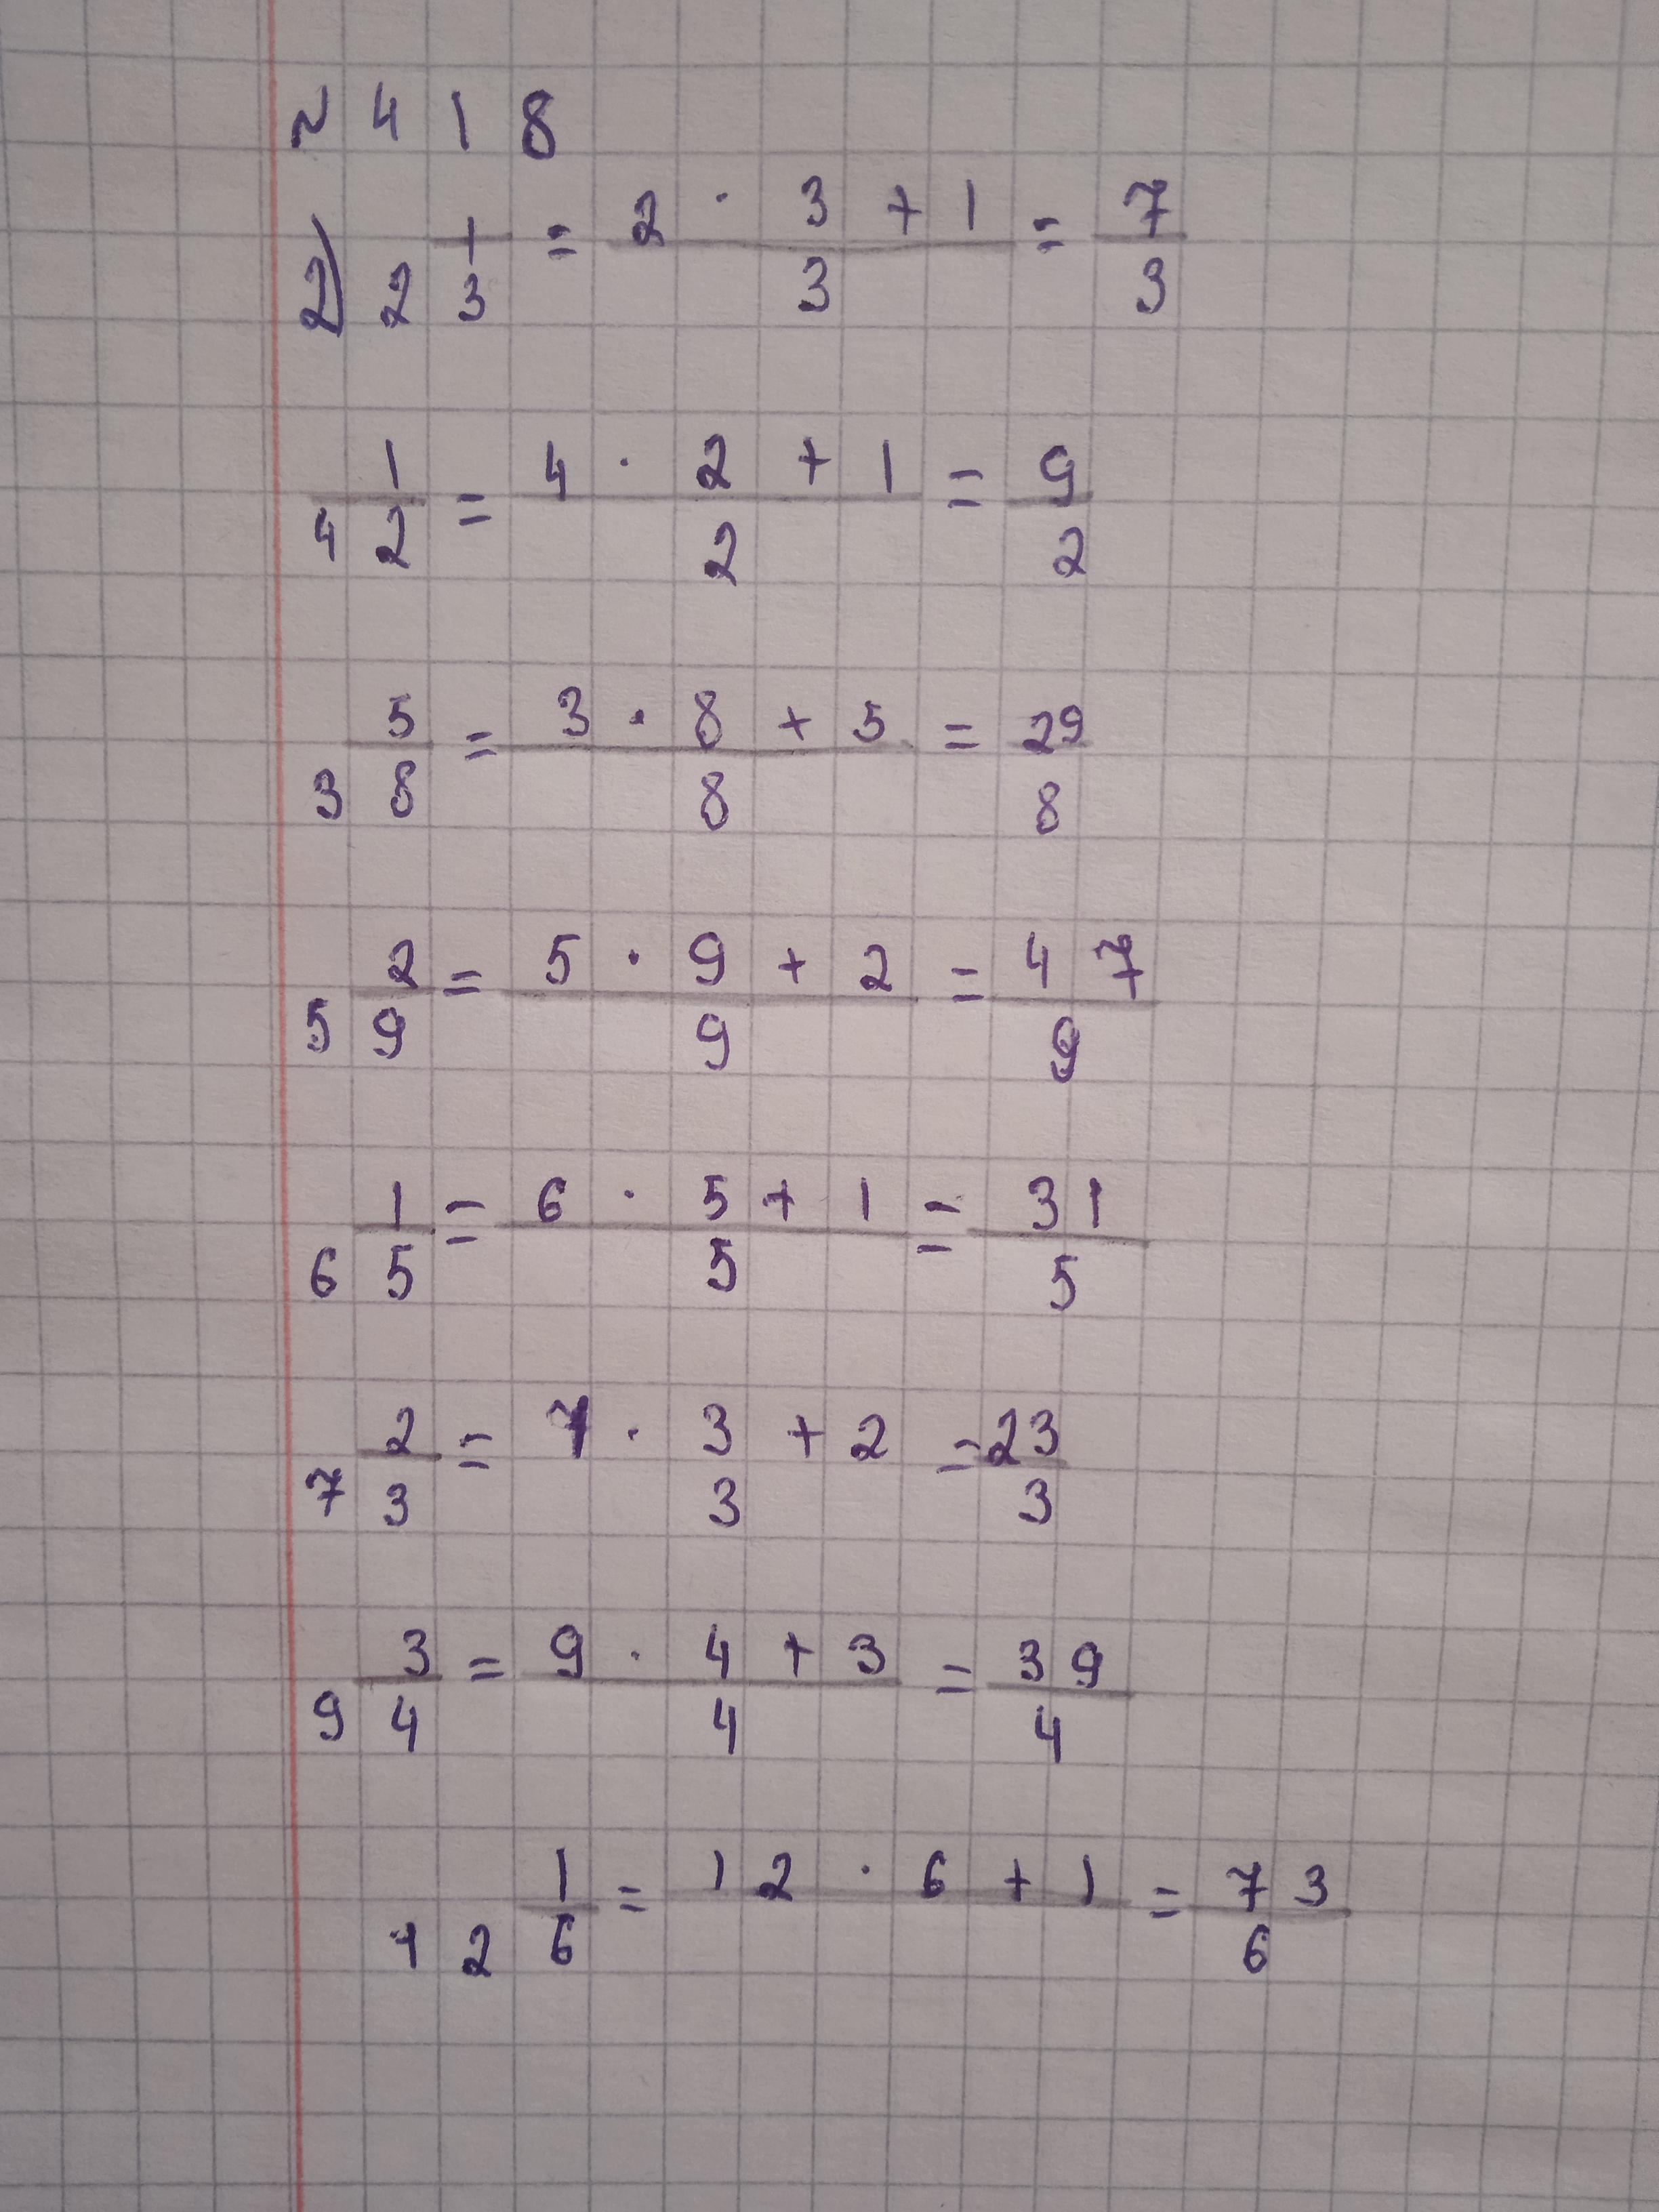 ~ 4 1 8
2) 2 1/3 = 2 · 3 + 1 / 3 = 7/3
4 1/2 = 4 · 2 + 1 / 2 = 9/2
3 5/8 = 3 · 8 + 5 / 8 = 29/8
5 2/9 = 5 · 9 + 2 / 9 = 47/9
6 1/5 = 6 · 5 + 1 / 5 = 31/5
7 2/3 = 7 · 3 + 2 / 3 = 23/3
9 3/4 = 9 · 4 + 3 / 4 = 39/4
12 1/6 = 12 · 6 + 1 = 73/6